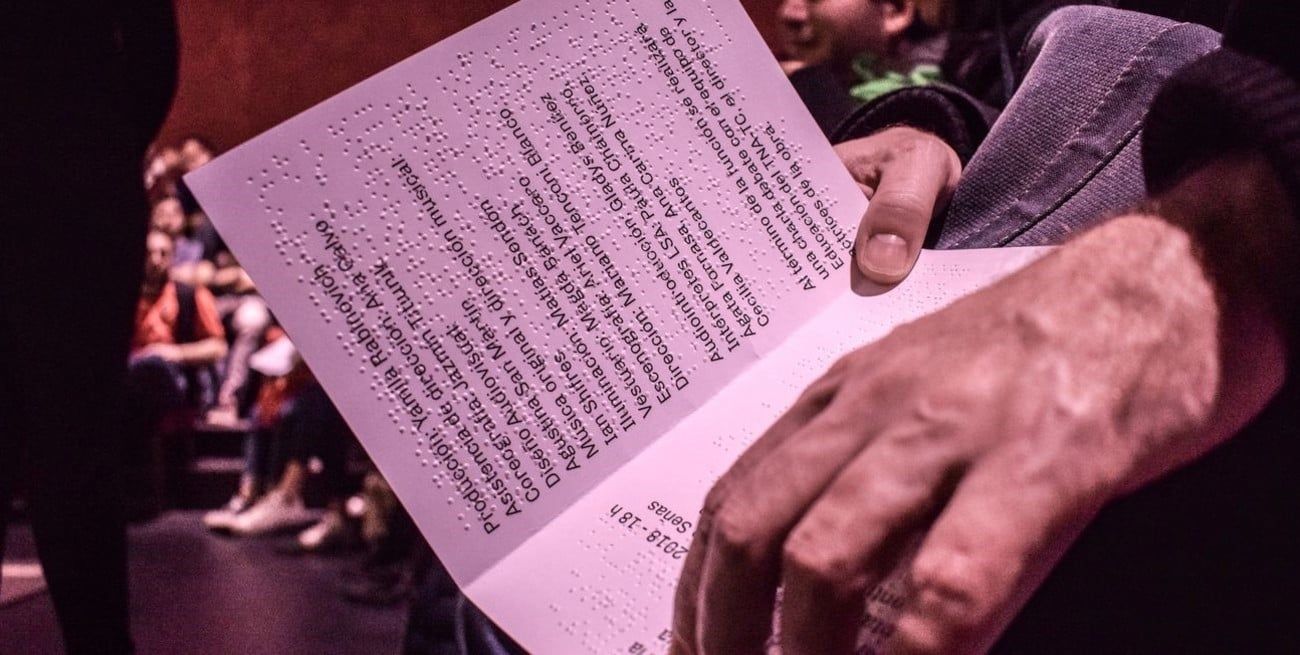 Producción: Yamila Rabinovich
Asistencia de dirección: Ana Calvo
Coreografía: Jazmín Titiunik.
Diseño Audiovisual:
Agustina San Martín.
Música original y dirección musical:
Ian Shifres.
Iluminación: Matías Sendón
Vestuario: Magda Banach.
Escenografía: Ariel Vaccaro
Dirección: Mariano Tenconi Blanco
Audiointroducción: Gladys Benítez
Intérpretes LSA: Paula
Agata Fornasa, Ana Carina Núñez
Cecilia Valdecantos
Al término de la función se realizará
una charla debate con el equipo de
Educación del TNA-TC, el director y la
actrices de la obra.
2018 - 18 h
Señas